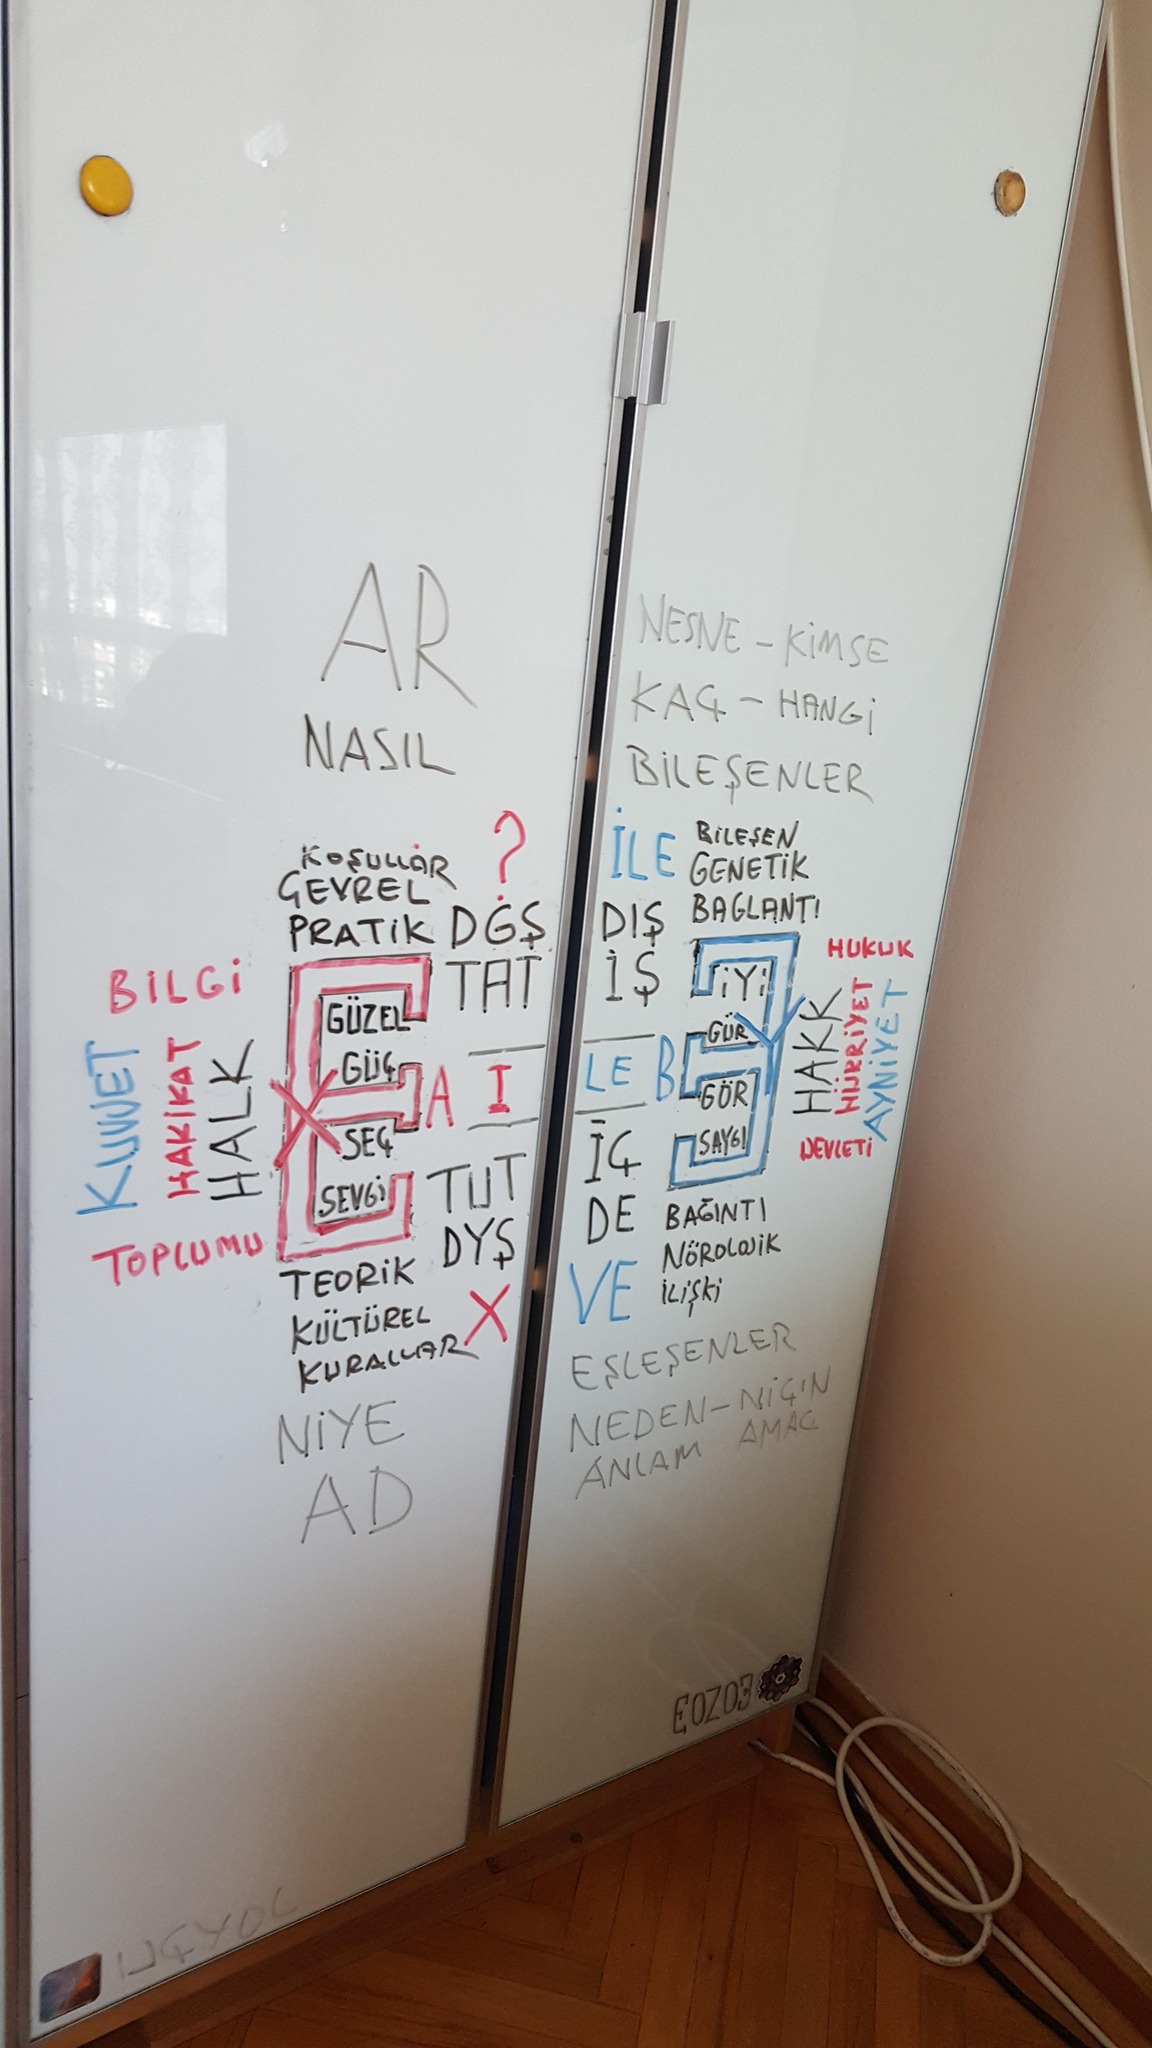 AR
NASIL
KOŞULLAR
ÇEVREL
PRATİK
?
DĞŞ
TAT
BİLGİ
KUVVET
HAKİKAT
HALK
TOPLUMU
GÜZEL
GÜÇ
SEÇ
SEVGİ
X
A
I
TUT
DYŞ
TEORİK
KÜLTÜREL
KURALLAR
X
NİYE
AD
ÜÇYOL
NESNE - KİMSE
KAÇ - HANGİ
BİLEŞENLER
İLE
BİLEŞEN
GENETİK
BAĞLANTI
DIŞ
İŞ
LE
B
İYİ
GÜR
GÖR
SAYGI
Y
HUKUK
HAKK
HÜRRİYET
AYNİYET
DEVLETİ
İÇ
DE
VE
BAĞINTI
NÖROLOJİK
İLİŞKİ
EŞLEŞENLER
NEDEN - NİÇİN
ANLAM AMAÇ